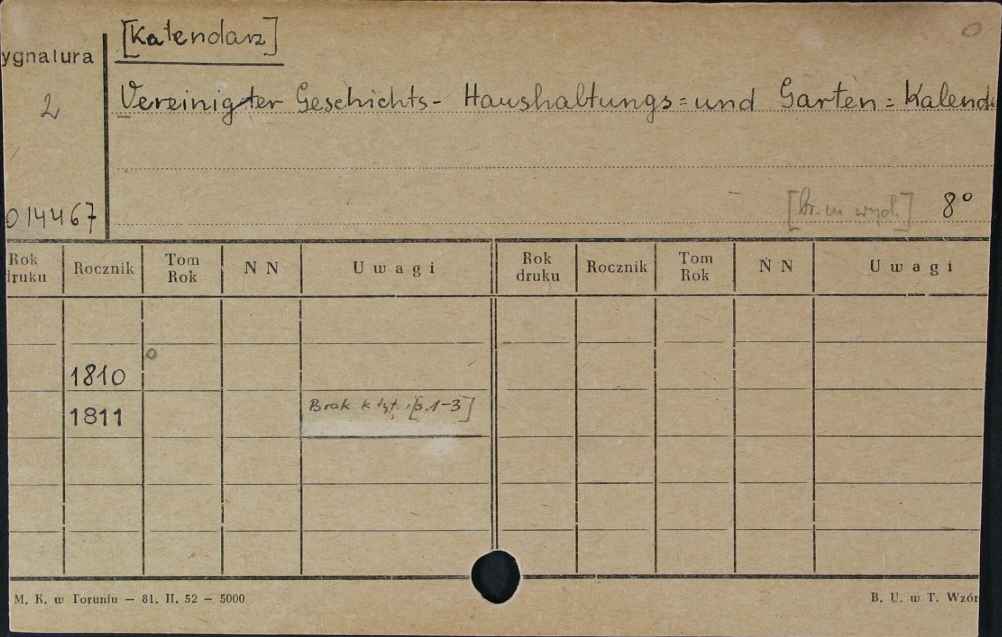 [Kalendarz]
ygnatura
2
Vereinigter Geschichts- Haushaltungs= und Garten= Kalend
014467
8°
Rok druku Rocznik Tom Rok N N Uwagi Rok druku Rocznik Tom Rok N N Uwagi
1810
1811 Brak k. tyt. i [s. 1-3]
M. K. w Toruniu — 81. II. 52 — 5000 B. U. w T. Wzór